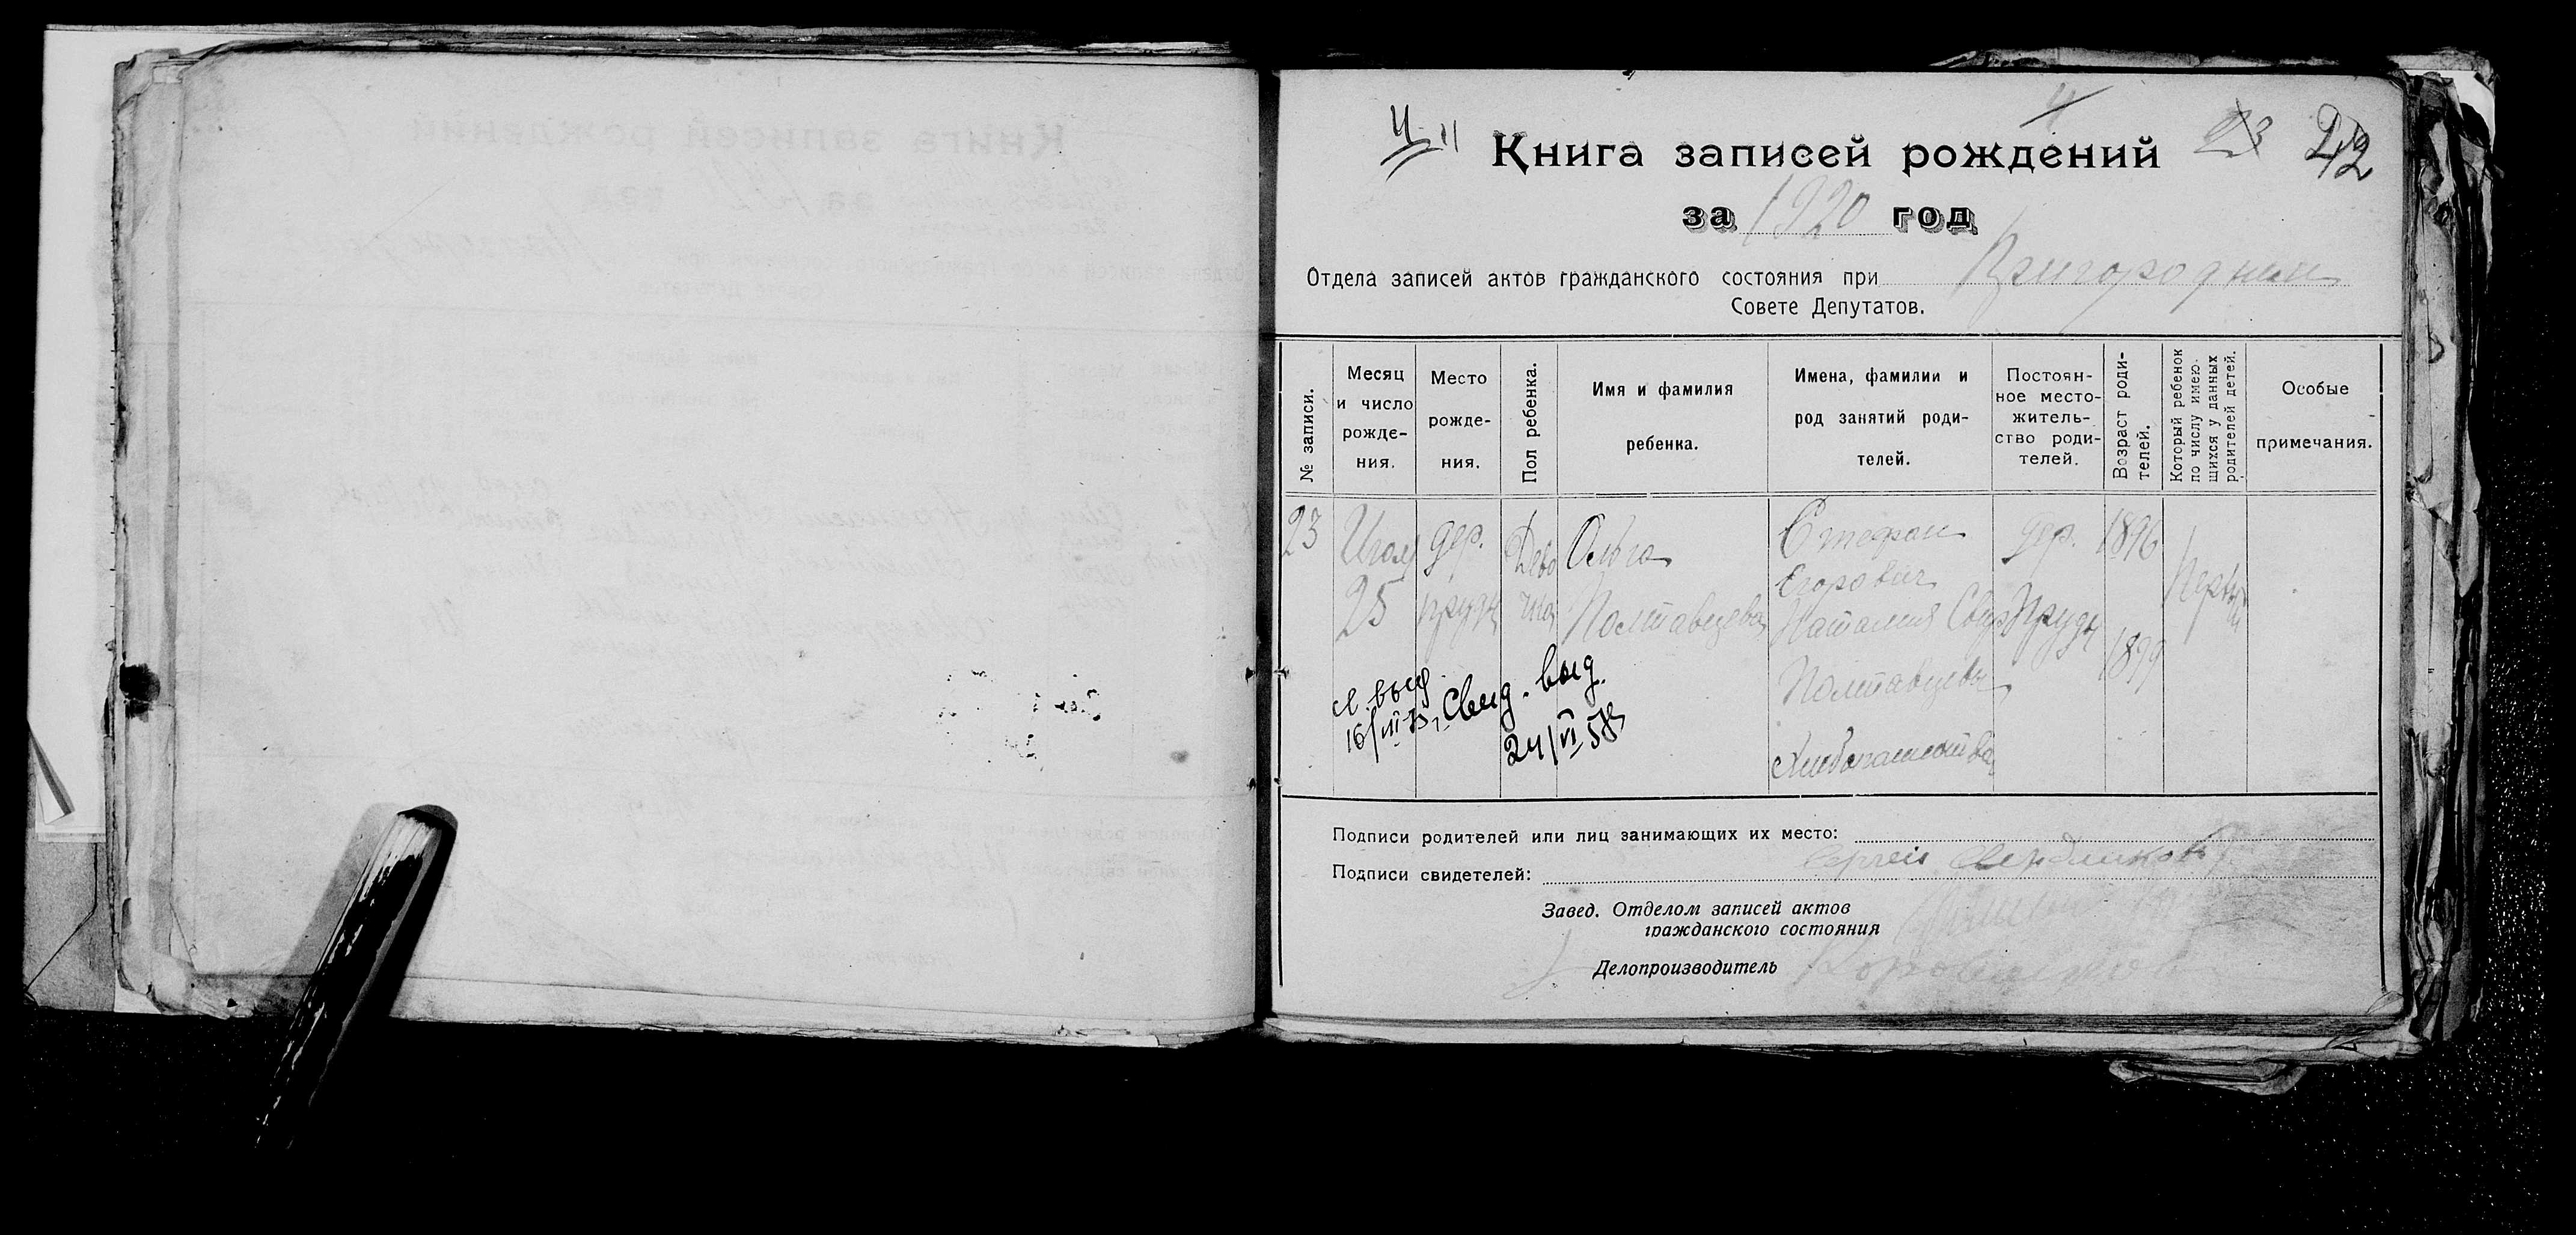 4 11
Книга записей рождений
23 22
за 1920 год
Отдела записей актов гражданского состояния при Пригородном
Совете Депутатов.
№ записи.
Месяц и число рожде-ния.
Место рожде-ния.
Пол ребенка.
Имя и фамилия ребенка.
Имена, фамилии и род занятий роди-телей.
Постоян-ное место-житель-ство роди-телей.
Возраст роди-телей.
Который ребенок по числу имею-щихся у данных родителей детей.
Особые примечания.
23
Июля
25
дер.
Пруды
Дево
чка
Ольга
Полтавцева
Стефан
Егорович
Наталия
Полтавцевы
Хлебопашества
дер.
Пруды
1896
1899
Первый
выд
16/III
Свид. выд.
24/VI 58
Подписи родителей или лиц занимающих их место:
Подписи свидетелей: Сергей
Завед. Отделом записей актов
гражданского состояния
Делопроизводитель